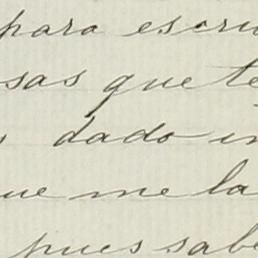 para escri
sas que te
dado in
ue me la
pues sabe